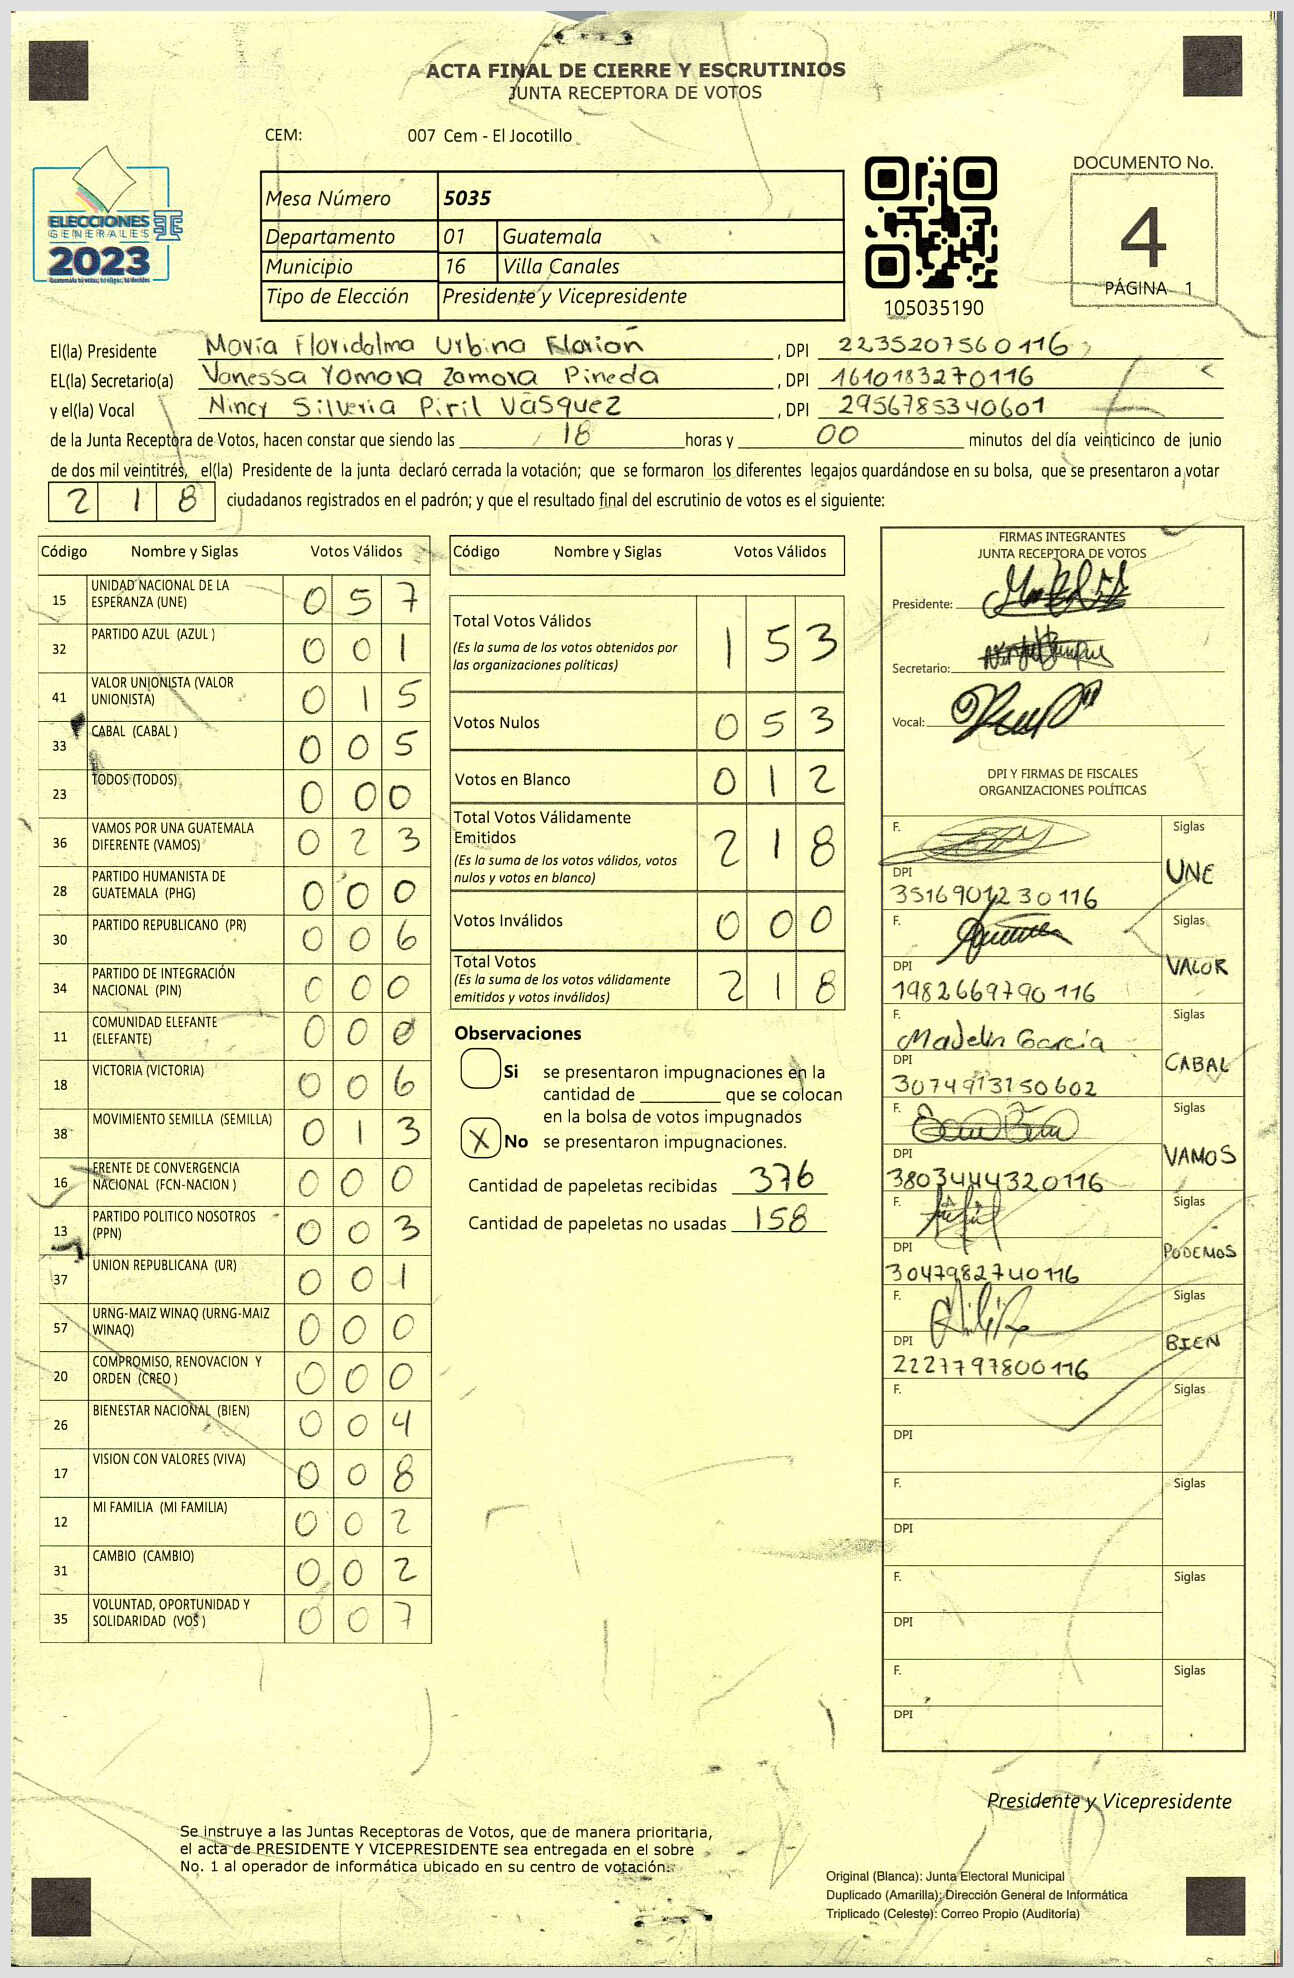 ACTA FINAL DE CIERRE Y ESCRUTINIOS
JUNTA RECEPTORA DE VOTOS
CEM: 007 Cem - El Jocotillo
ELECCIONES
GENERALES
2023
Mesa Número 5035
Departamento 01 Guatemala
Municipio 16 Villa Canales
Tipo de Elección Presidente y Vicepresidente
105035190
DOCUMENTO No.
4
PÁGINA 1
El(la) Presidente María Floridalma Urbina Florián, DPI 2235207560116
EL(la) Secretario(a) Vanessa Yamora Zamora Pineda, DPI 1610183270116
y el(la) Vocal Nincy Silveria Piril Vásquez, DPI 2956785340601
de la Junta Receptora de Votos, hacen constar que siendo las 18 horas y 00 minutos del día veinticinco de junio
de dos mil veintitrés, el(la) Presidente de la junta declaró cerrada la votación; que se formaron los diferentes legajos quardándose en su bolsa, que se presentaron a votar
218 ciudadanos registrados en el padrón; y que el resultado final del escrutinio de votos es el siguiente:
Código Nombre y Siglas Votos Válidos
15 UNIDAD NACIONAL DE LA ESPERANZA (UNE) 057
32 PARTIDO AZUL (AZUL ) 001
41 VALOR UNIONISTA (VALOR UNIONISTA) 015
33 CABAL (CABAL ) 005
23 TODOS (TODOS) 000
36 VAMOS POR UNA GUATEMALA DIFERENTE (VAMOS) 023
28 PARTIDO HUMANISTA DE GUATEMALA (PHG) 000
30 PARTIDO REPUBLICANO (PR) 006
34 PARTIDO DE INTEGRACIÓN NACIONAL (PIN) 000
11 COMUNIDAD ELEFANTE (ELEFANTE) 000
18 VICTORIA (VICTORIA) 006
38 MOVIMIENTO SEMILLA (SEMILLA) 013
16 FRENTE DE CONVERGENCIA NACIONAL (FCN-NACION ) 000
13 PARTIDO POLITICO NOSOTROS (PPN) 003
37 UNION REPUBLICANA (UR) 001
57 URNG-MAIZ WINAQ (URNG-MAIZ WINAQ) 000
20 COMPROMISO, RENOVACION Y ORDEN (CREO ) 000
26 BIENESTAR NACIONAL (BIEN) 004
17 VISION CON VALORES (VIVA) 008
12 MI FAMILIA (MI FAMILIA) 002
31 CAMBIO (CAMBIO) 002
35 VOLUNTAD, OPORTUNIDAD Y SOLIDARIDAD (VOS ) 007
Código Nombre y Siglas Votos Válidos
Total Votos Válidos 153
(Es la suma de los votos obtenidos por
las organizaciones políticas)
Votos Nulos 053
Votos en Blanco 012
Total Votos Válidamente
Emitidos 218
(Es la suma de los votos válidos, votos
nulos y votos en blanco)
Votos Inválidos 000
Total Votos 218
(Es la suma de los votos válidamente
emitidos y votos inválidos)
Observaciones
Si se presentaron impugnaciones en la
cantidad de ________ que se colocan
en la bolsa de votos impugnados
X No se presentaron impugnaciones.
Cantidad de papeletas recibidas 376
Cantidad de papeletas no usadas 158
FIRMAS INTEGRANTES
JUNTA RECEPTORA DE VOTOS
Presidente:
Secretario:
Vocal:
DPI Y FIRMAS DE FISCALES
ORGANIZACIONES POLÍTICAS
F. Siglas
DPI UNE
3516901230116
F. Siglas
DPI VALOR
1982669790116
F. Madelin García Siglas
DPI CABAL
3074913150602
F. Siglas
DPI VAMOS
3803444320116
F. Siglas
DPI PODEMOS
3047982740116
F. Siglas
DPI BIEN
2227797800116
F. Siglas
DPI
F. Siglas
DPI
F. Siglas
DPI
F. Siglas
DPI
Presidente y Vicepresidente
Se instruye a las Juntas Receptoras de Votos, que de manera prioritaria,
el acta de PRESIDENTE Y VICEPRESIDENTE sea entregada en el sobre
No. 1 al operador de informática ubicado en su centro de votación.
Original (Blanca): Junta Electoral Municipal
Duplicado (Amarilla): Dirección General de Informática
Triplicado (Celeste): Correo Propio (Auditoría)